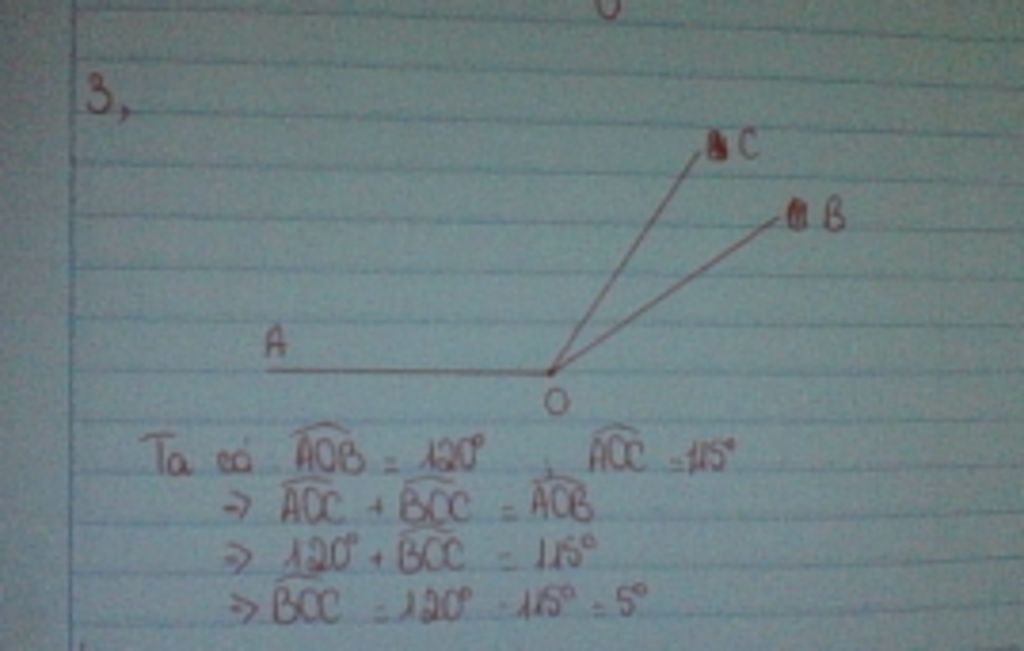 3,
C
B
A
O
Ta có $\widehat{AOB}$ = 120° ; $\widehat{AOC}$ = 115°
=> $\widehat{AOC}$ + $\widehat{BOC}$ = $\widehat{AOB}$
=> 120° + $\widehat{BOC}$ = 115°
=> $\widehat{BOC}$ = 120° - 115° = 5°